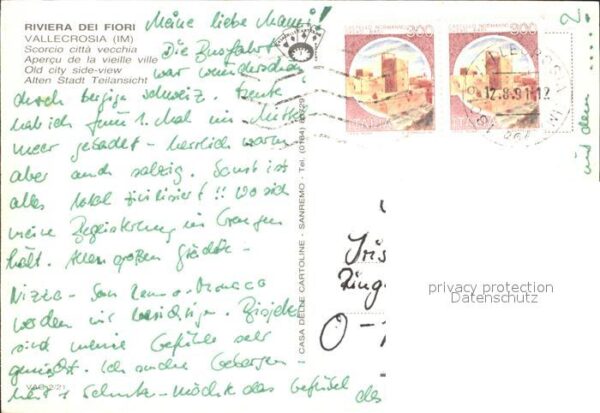 RIVIERA DEI FIORI
VALLECROSIA (IM)
Scorcio città vecchia
Aperçu de la vieille ville
Old city side-view
Alten Stadt Teilansicht
Meine liebe Mami!
Die Busfahrt
war wunderschön
durch Schweiz. Heute
hab ich zum 1. Mal im Mittel
meer gebadet - herrlich warm
aber auch salzig. Sonst ist
alles total zivilisiert!! wo sich
meine Begeisterung in Grenzen
hält. Allen großen Städte -
Nizza - San Remo - Monaco
werden wir besichtigen. Bisjetzt
sind meine Gefühle sehr
gemischt. Ich suche Geborgen
heit + Schutz - Möchte das Gefühl des
VAC-2/21
CASA DELLE CARTOLINE - SANREMO - Tel. (0184)
300
300
VALLECROSIA (IM)
12.8.91-12
2.
und dem
Iris
Ring
O-
privacy protection
Datenschutz